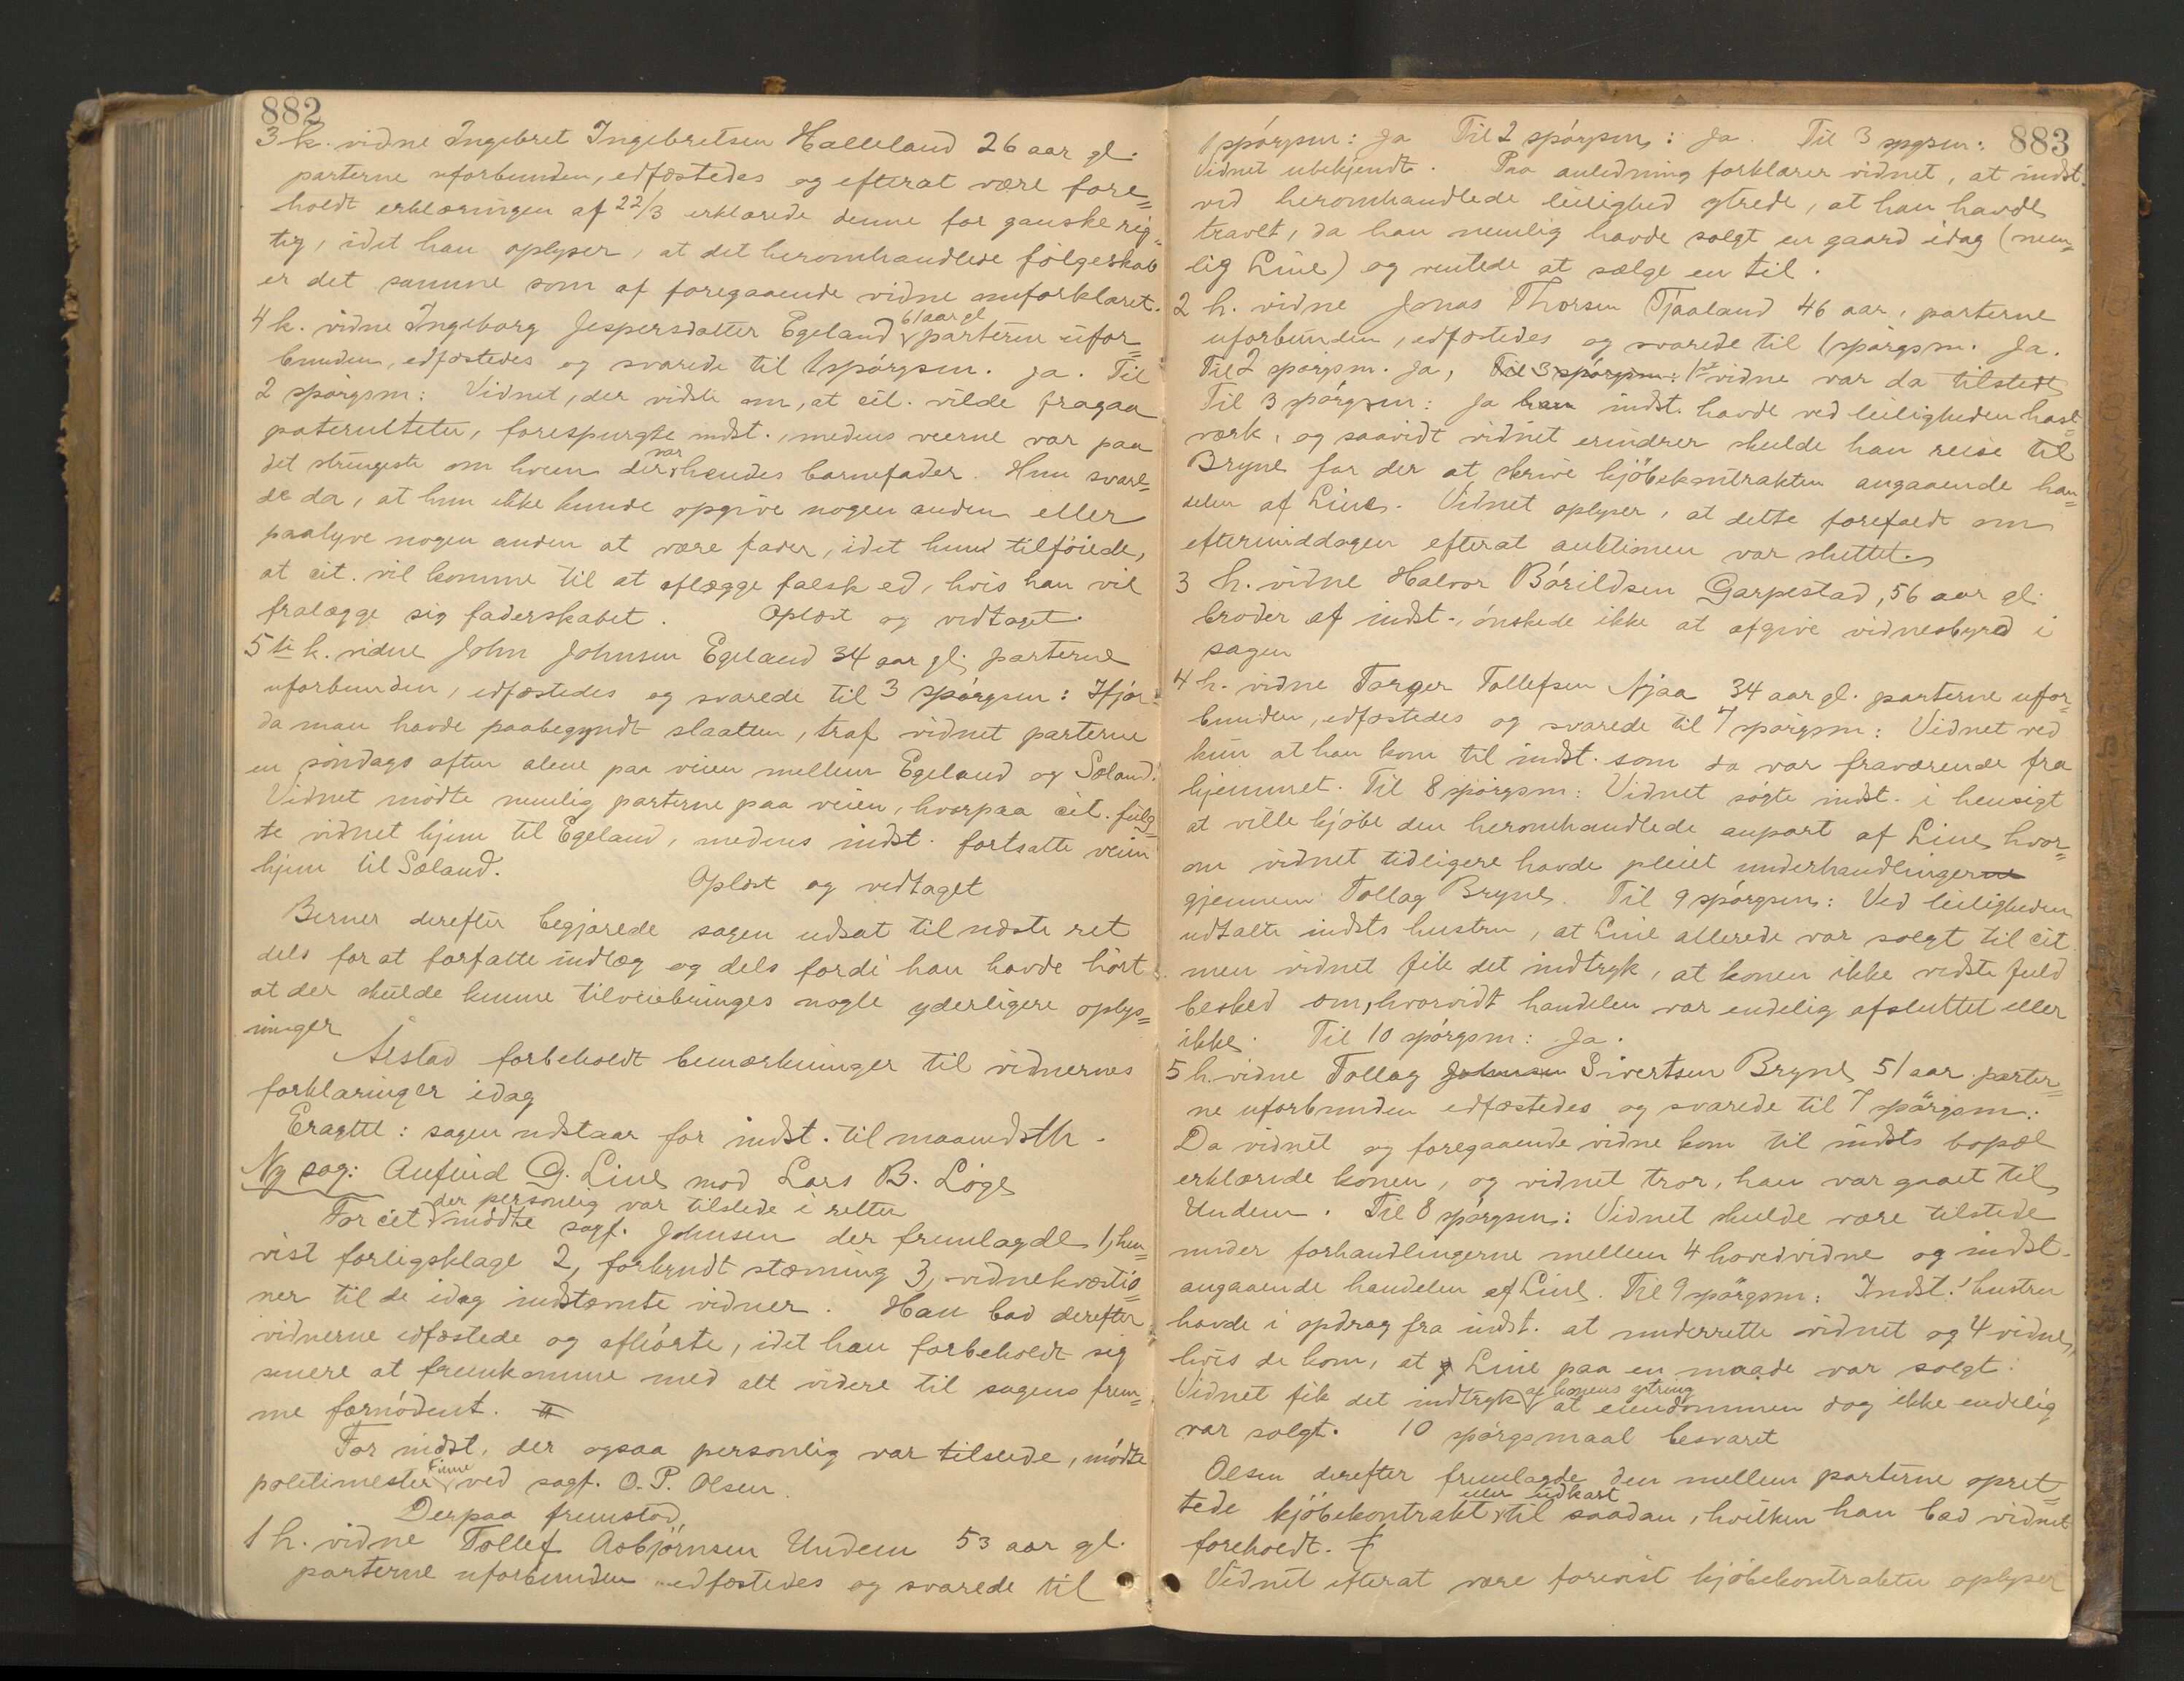 882
3 k. vidne Ingebret Ingebretsen Halleland 26 aar gl.
parterne uforbunden, edfæstedes og efterat være fore=
holdt erklæringen af 22/3 erklærede denne for ganske rig=
tig, idet han oplyser, at det heromhandlede følgeskab
er det samme som af foregaaende vidne omforklaret.
4 k. vidne Ingeborg Jespersdatter Egeland 61 aar gl parterne ufor=
bunden, edfæstedes og svarede til 1 spørgsm. ja. Til
2 spørgsm: Vidnet, der vidste om, at cit. vilde fragaa
paterniteten, forespurgte indst., medens veerne var paa
det strengeste om hvem der var hendes barnefader. Hun svare=
de da, at hun ikke kunde opgive nogen anden eller
paalyve nogen anden at være fader, idet hun tilføiede,
at cit. vil komme til at aflægge falsk ed, hvis han vil
fralægge sig faderskabet. Oplæst og vedtaget.
5te k. vidne John Johnsen Egeland 34 aar gl, parterne
uforbunden, edfæstedes og svarede til 3 spørgsm: Ifjor
da man havde paabegyndt slaatten, traf vidnet parterne
en søndags aften alene paa veien mellem Egeland og Sæland.
Vidnet mødte nemlig parterne paa veien, hvorpaa cit. fulg=
te vidnet hjem til Egeland, medens indst. fortsatte veien
hjem til Sæland.
Oplæst og vedtaget
Berner derefter begjærede sagen udsat til næste ret
dels for at forfatte indlæg og dels fordi han havde hørt
at der skulde kunne tilveiebringes nogle yderligere oplys=
ninger
Aastad forbeholdt bemærkninger til vidnernes
forklaringer idag
Eragtet: sagen udstaar for indst. til maanedsth.
Ny sag: Anfind G. Line mod Lars B. Løge
For cit der personlig var tilstede i retten mødte sagf. Johnsen der fremlagde 1, hen=
vist forligsklage 2, forkyndt stævning 3, vidnekvæstio=
ner til de idag indstævnte vidner. Han bad derefter
vidnerne edfæstede og afhørte, idet han forbeholdt sig
senere at fremkomme med alt videre til sagens frem=
me fornødent.
For indst. der ogsaa personlig var tilstede, mødte
politimester Finne ved sagf. O. P. Olsen.
Derpaa fremstod,
1 h. vidne Tollef Asbjørnsen Undem 53 aar gl.
parterne uforbunden edfæstedes og svarede til
883
1 spørgsm: ja Til 2 spørgsm: ja. Til 3 spgsm:
Vidnet ubekjendt. Paa anledning forklarer vidnet, at indst.
ved heromhandlede leilighed ytrede, at han havde
travlt, da han nemlig havde solgt en gaard idag (nem=
lig Line) og ventede at sælge en til.
2 h. vidne Jonas Thorsen Tjaaland 46 aar, parterne
uforbunden, edfæstedes og svarede til 1 spørgsm. Ja.
Til 2 spørgsm. Ja, Til 3 spørgsm: 1ste vidne var da tilstede
Til 3 spørgsm: Ja han indst. havde ved leiligheden hast=
værk, og saavidt vidnet erindrer skulde han reise til
Bryne for der at skrive kjøbekontrakten angaaende han=
delen af Line. Vidnet oplyser, at dette forefaldt om
eftermiddagen efterat auktionen var sluttet.
3 h. vidne Halvor Børildsen Garpestad, 56 aar gl.
broder af indst., ønskede ikke at afgive vidnesbyrd i
sagen
4 h. vidne Torger Tollefsen Njaa 34 aar gl. parterne ufor=
bunden, edfæstedes og svarede til 7 spørgsm: Vidnet ved
kun at han kom til indst. som da var fraværende fra
hjemmet. Til 8 spørgsm: Vidnet søgte indst. i hensigt
at ville kjøbe den heromhandlede anpart af Line, hvor=
om vidnet tidligere havde pleiet underhandlingerne
gjennem Tollag Bryne. Til 9 spørgsm: Ved leiligheden
udtalte indsts hustru, at Line allerede var solgt til cit
men vidnet fik det indtryk, at konen ikke vidste fuld
besked om, hvorvidt handelen var endelig afsluttet eller
ikke. Til 10 spørgsm: Ja.
5 h. vidne Tollag Johnsen Sivertsen Bryne 51 aar parter=
ne uforbunden edfæstedes og svarede til 7 spørgsm:
Da vidnet og foregaaende vidne kom til indsts bopæl
erklærede konen, og vidnet tror, han var gaaet til
Undem. Til 8 spørgsm: Vidnet skulde være tilstede
under forhandlingerne mellem 4 hovedvidne og indst.
angaaende handelen af Line. Til 9 spørgsm: Indst.' hustru
havde i opdrag fra indst. at underrette vidnet og 4 vidne,
hvis de kom, at Line paa en maade var solgt.
Vidnet fik det indtryk af konens ytring at eiendommen dog ikke endelig
var solgt. 10 spørgsmaal besvaret
Olsen derefter fremlagde den mellem parterne opret=
tede kjøbekontrakt eller udkast til saadan, hvilken han bad vidnet
foreholdt.
Vidnet efterat være forevist kjøbekontrakten oplyser